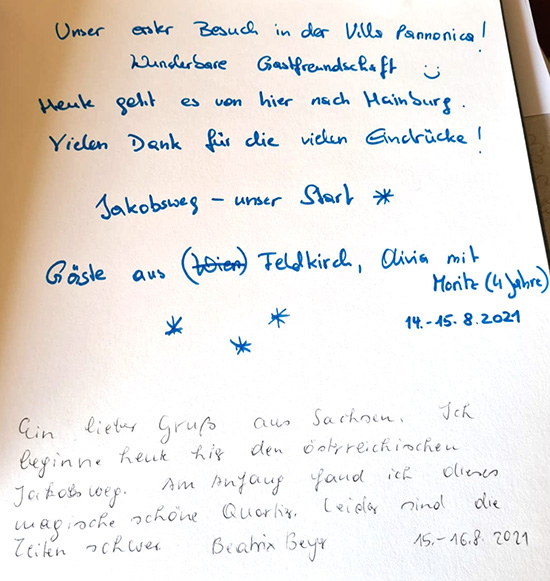 Unser erster Besuch in der Villa Pannonica!
Wunderbare Gastfreundschaft :)
Heute geht es von hier nach Hainburg.
Vielen Dank für die vielen Eindrücke!
Jakobsweg – unser Start *
Gäste aus (Wien) Feldkirch, Olivia mit
Moritz (4 Jahre)
14.-15.8.2021
Ein lieber Gruß aus Sachsen. Ich
beginne heute hier den österreichischen
Jakobsweg. Am Anfang fand ich dieses
magische schöne Quartier. Leider sind die
Zeiten schwer. Beatrix Beyer 15.-16.8.2021